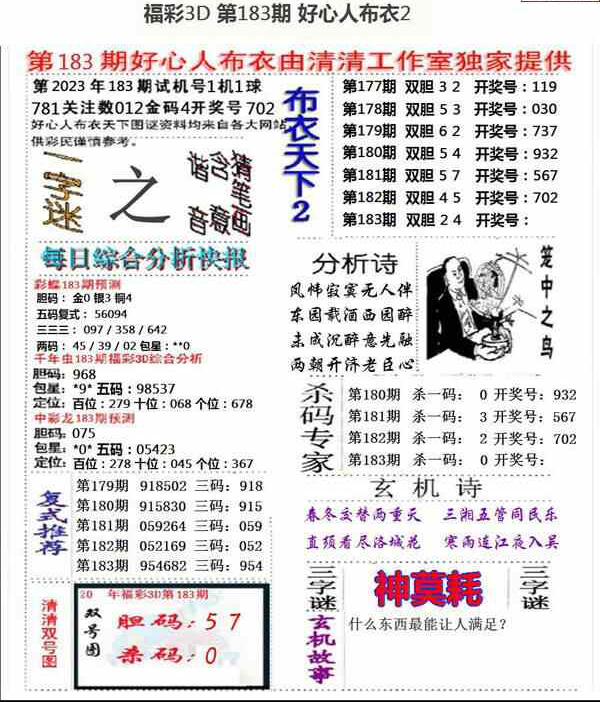 福彩3D 第183期 好心人布衣2
第183期好心人布衣由清清工作室独家提供
第2023年183期试机号1机1球
781关注数012金码4开奖号702
好心人布衣天下图谜资料均来自各大网站
供彩民谨慎参考。
一字谜
之
谐音
含意
猜笔画
每日綜合分析快报
彩蝶183期预测
胆码：金0 银3 铜4
五码复式：56094
三三三：097 / 358 / 642
两码：45 / 39 / 02 包星：**0
千年虫183期福彩3D综合分析
胆码：968
包星：*9* 五码：98537
定位：百位：279 十位：068 个位：678
中彩龙183期预测
胆码：075
包星：*0* 五码：05423
定位：百位：278 十位：045 个位：367
复式推荐
第179期 918502 三码：918
第180期 915830 三码：915
第181期 059264 三码：059
第182期 052169 三码：052
第183期 954682 三码：954
清清双号图
20 年福彩3D第183期
双号图
胆码：5 7
杀码：0
布衣天下2
第177期 双胆 3 2 开奖号：119
第178期 双胆 5 3 开奖号：030
第179期 双胆 6 2 开奖号：737
第180期 双胆 5 4 开奖号：932
第181期 双胆 5 7 开奖号：567
第182期 双胆 4 5 开奖号：702
第183期 双胆 2 4 开奖号：
分析诗
风帏寂寞无人伴
东园载酒西园醉
未成沉醉意先融
两朝开济老臣心
笼中之鸟
杀码专家
第180期 杀一码： 0 开奖号：932
第181期 杀一码： 3 开奖号：567
第182期 杀一码： 2 开奖号：702
第183期 杀一码： 0 开奖号：
玄机诗
春冬交替两重天 三湘五管同民乐
直须看尽洛城花 寒雨连江夜入吴
三字谜
神莫耗
三字谜
玄机故事
什么东西最能让人满足？